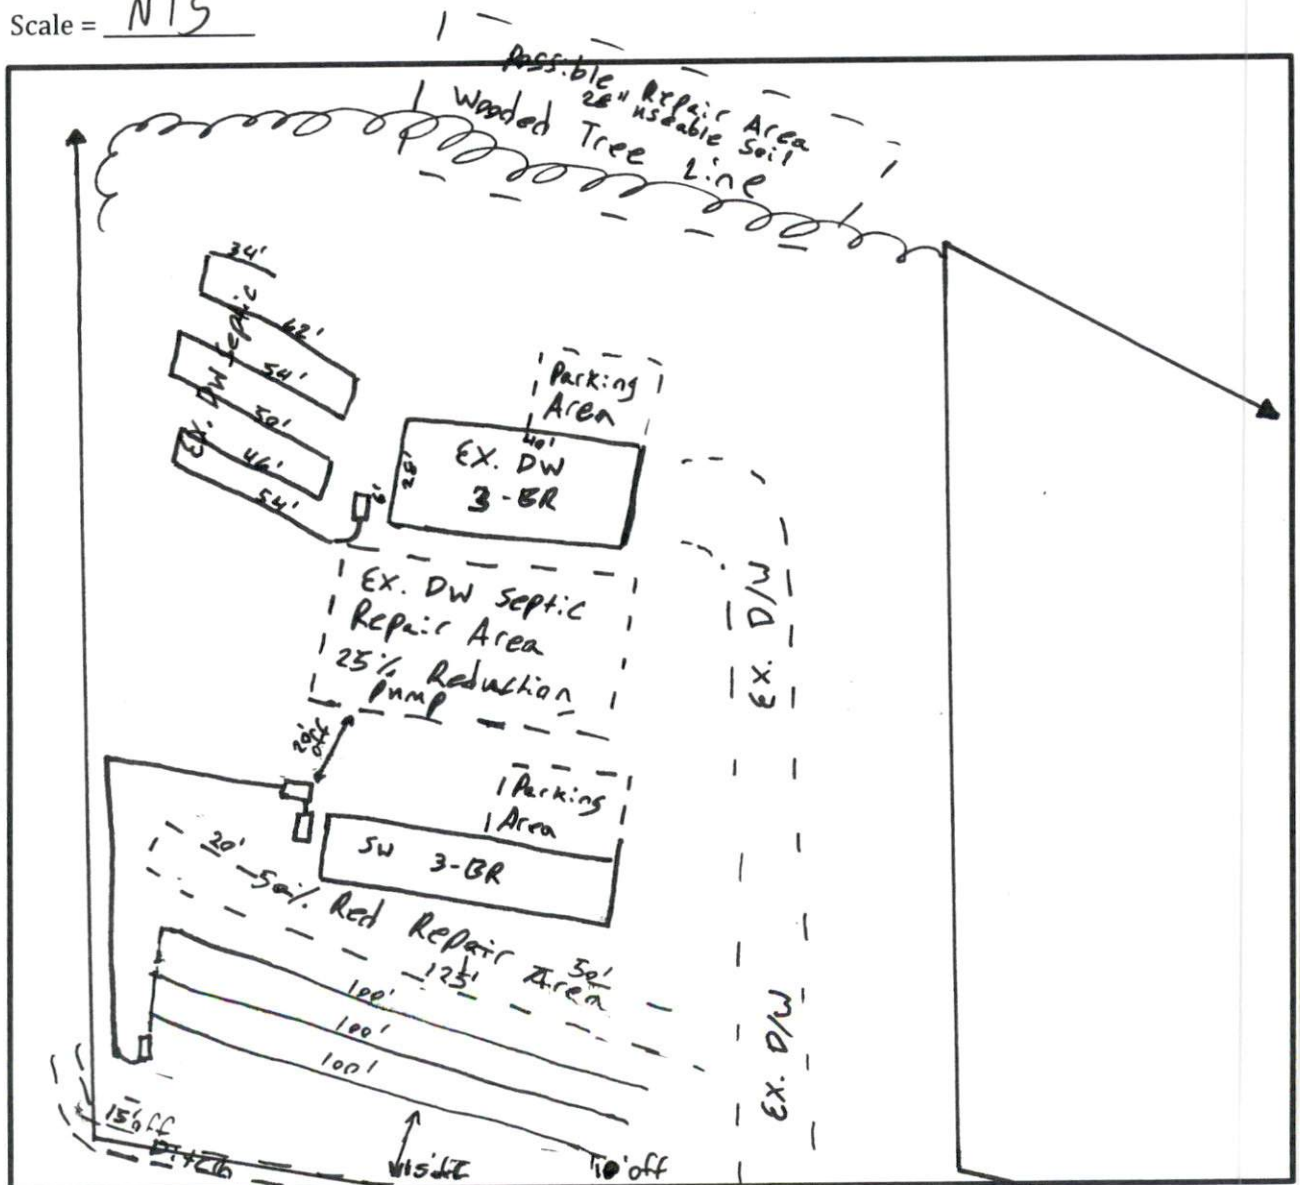 Scale = NTS
Possible Repair Area
28" useable Soil
Wooded Tree Line
34'
62'
54'
50'
46'
54'
EX. DW Septic
6'
Parking
Area
40'
28'
EX. DW
3-BR
EX. DW Septic
Repair Area
25% Reduction
Pump
EX. D/W
20' off
Parking
Area
SW 3-BR
20'
50% Red Repair Area
50'
125'
100'
100'
100'
EX. D/W
15' off
Ditch
10' off